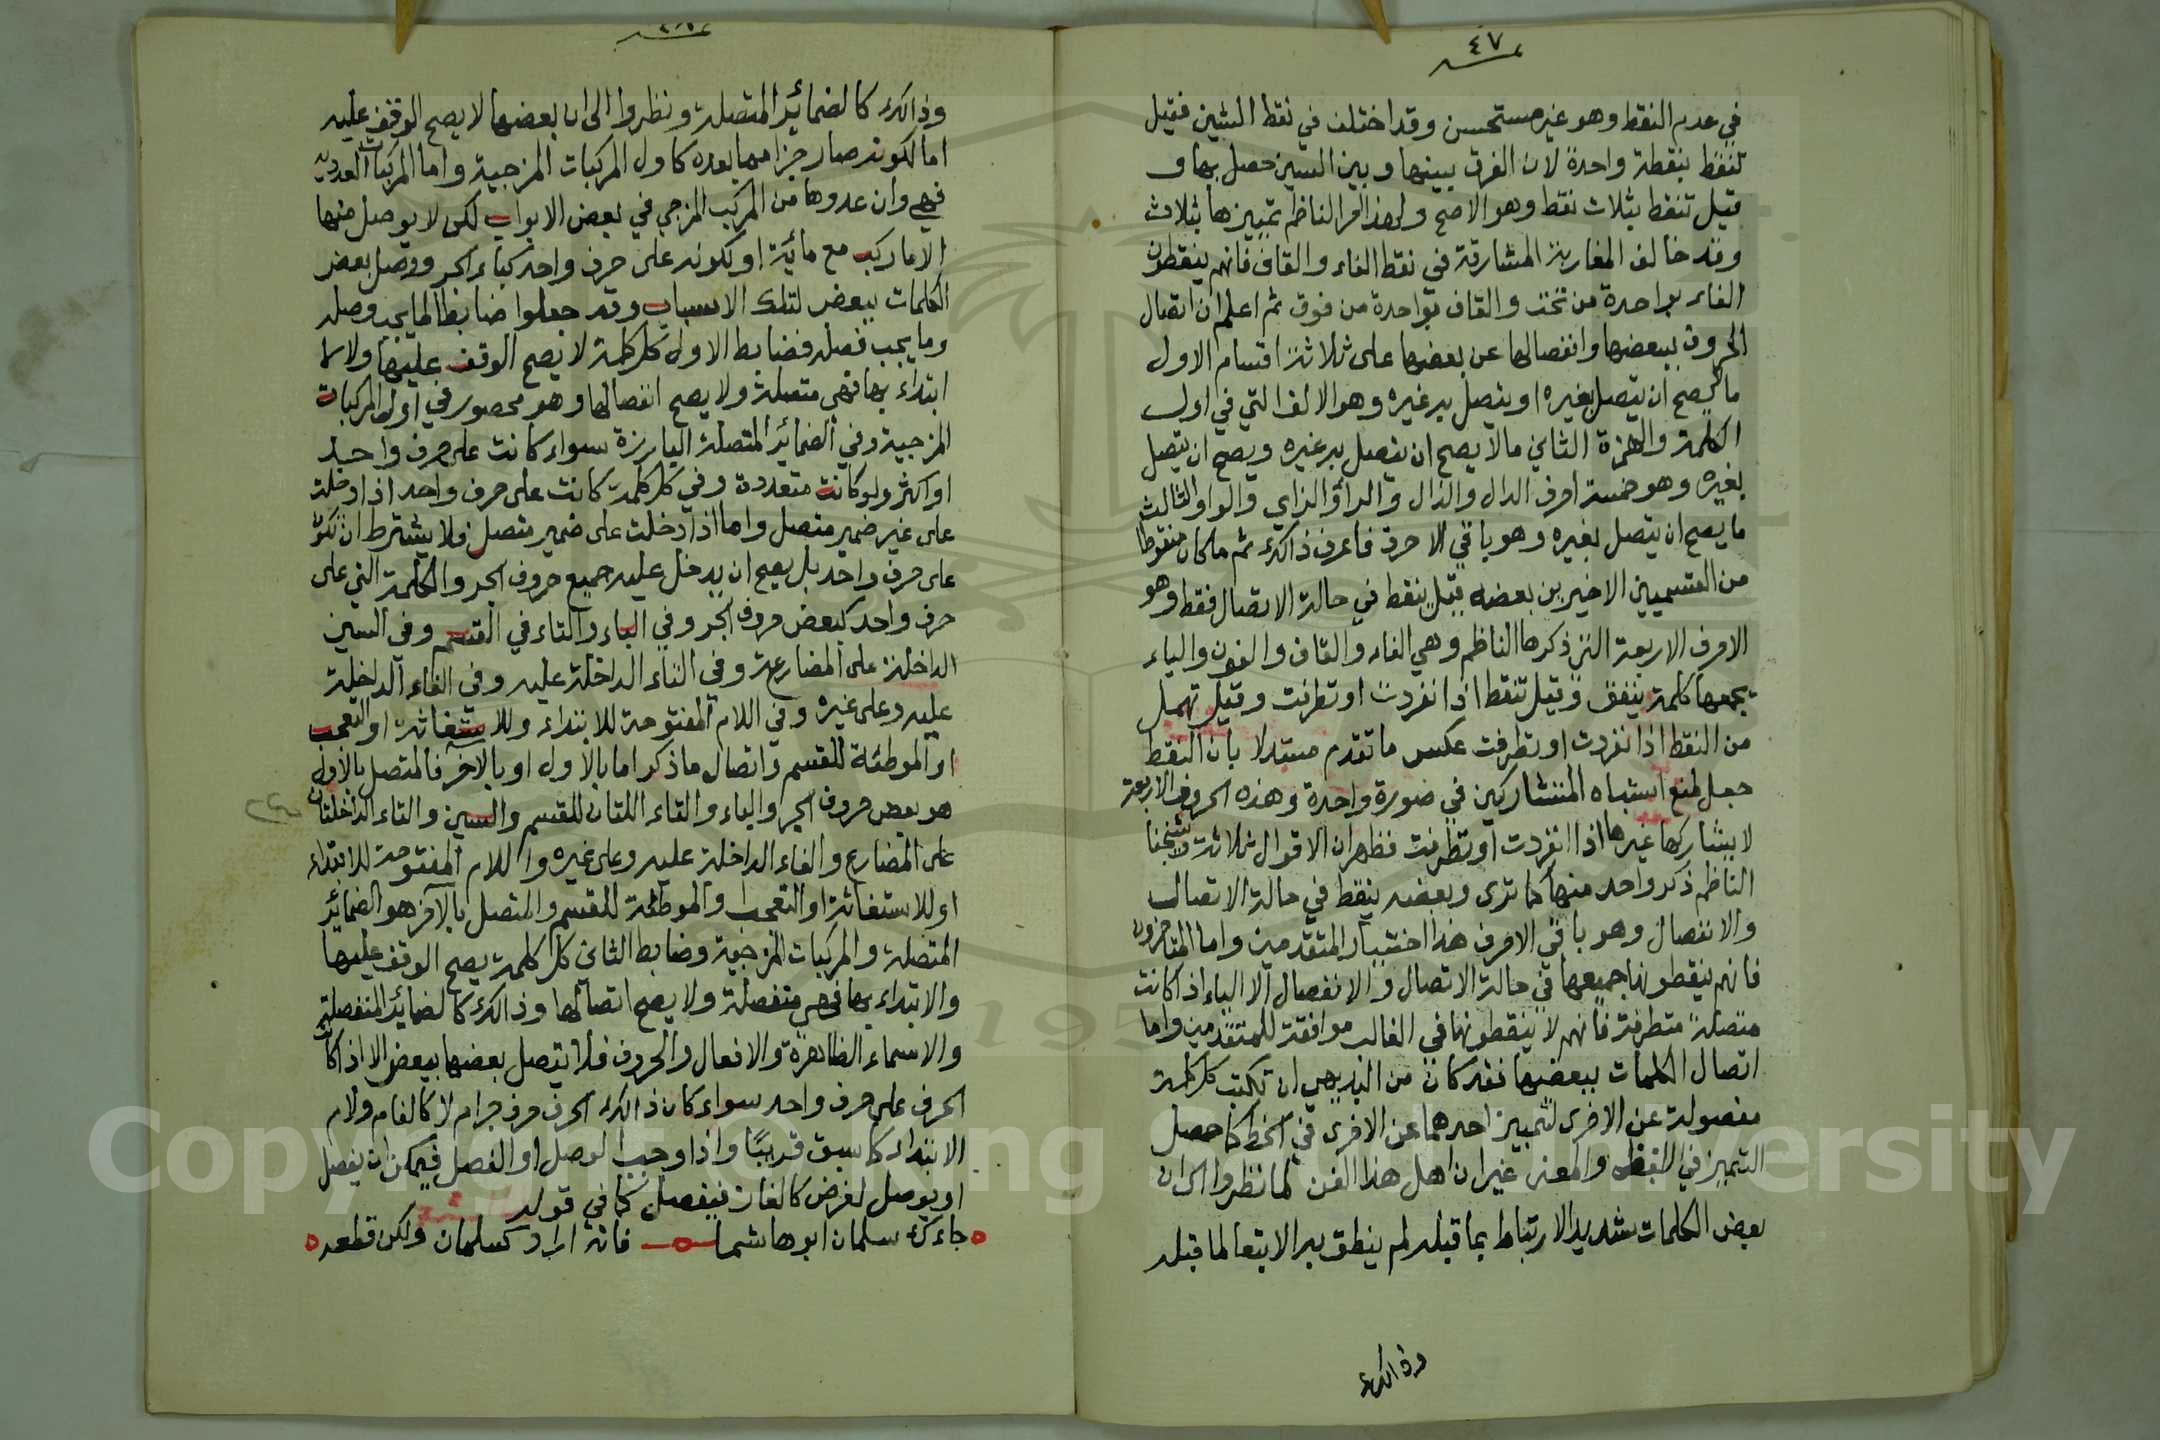 ٤٧
في عدم النقط وهو غير مستحسن وقد اختلف في نقط الشين فقيل
تنقط بنقطة واحدة لان الفرق بينها وبين السين حصل بها و
قيل تنقط بثلاث نقط وهو الاصح ولهذا الناظم تمييزها بثلاث
وقد خالف المغاربة المشارقة في نقط الفاء والقاف فانهم ينقطون
الفاء بواحدة من تحت والقاف بواحدة من فوق ثم اعلم ان اتصال
الحروف ببعضها وانفصالها عن بعضها على ثلاثة اقسام الاول
ما لا يصح ان يتصل بغيره او يتصل به غيره وهو الالف التي في اول
الكلمة والهمزة الثاني ما لا يصح ان يتصل به غيره ويصح ان يتصل
بغيره وهو خمسة احرف الدال والذال والراء والزاي والواو الثالث
ما يصح ان يتصل بغيره وهو باقي الاحرف فاعرف ذالك ثم ما كان منقوطا
من القسميين الاخيرين بعضه قيل ينقط في حالة الاتصال فقط وهو
الاحرف الاربعة الذي ذكرها الناظم وهي الفاء والقاف والنون والياء
يجمعها كلمة ينفق وقيل تنقط اذا انفردت او تطرفت وقيل تهمل
من النقط اذا انفردت او تطرفت عكس ما تقدم مستدلا بان النقط
جعل لمنع اشتباه المتشاركين في صورة واحدة وهذه الحروف الاربعة
لا يشاركها غيرها اذا انفردت او تطرفت فظهر ان الاقوال ثلاثة وشيخنا
الناظم ذكر واحد منها كما ترى وبعضه ينقط في حالة الاتصال
والانفصال وهو باقي الاحرف هذا اختيار المتقدمين واما المتاخرون
فانهم ينقطونها جميعها في حالة الاتصال والانفصال الا الياء اذا كانت
متصلة متطرفة فانهم لا ينقطونها في الغالب موافقة للمتقدمين واما
اتصال الكلمات ببعضها فقد كان من البديهي ان تكتب كل كلمة
مفصولة عن الاخرى لتمييز احدهما عن الاخرى في الخط كما حصل
التمييز في اللفظ والمعنى غير ان اهل هذا الفن لما نظروا الى ان
بعض الكلمات شديد الارتباط بما قبله لم ينطق به الا تبعا لما قبله
وذالك
وذالك كالضمائر المتصلة ونظروا الى ان بعضها لا يصح الوقف عليه
اما لكونه صار جزا مما بعده كاول المركبات المزجية واما المركبات العددية
فهي وان عدوها من المركب المزجي في بعض الابواب لكن لا يوصل منها
الا ما ركب مع مائية او لكونه على حرف واحد كباء الجر ووصل بعض
الكلمات ببعض لتلك الاسباب وقد جعلوا ضابطا لما يجب وصله
وما يجب فصله فضابط الاول كل كلمة لا يصح الوقف عليها ولا
ابتداء بها فهي متصلة ولا يصح انفصالها وهو محصور في اول المركبات
المزجية وفي الضمائر المتصلة البارزة سواء كانت على حرف واحد
او اكثر ولو كانت متعددة وفي كل كلمة كانت على حرف واحد اذا دخلت
على غير ضمير متصل واما اذا دخلت على ضمير متصل فلا يشترط ان تكون
على حرف واحد بل يصح ان يدخل عليه جميع حروف الجر والكلمة التي على
حرف واحد كبعض حروف الجر وفي الباء والتاء في القسم وفي السين
الداخلة على المضارعة وفي التاء الداخلة عليه وفي الفاء الداخلة
عليه وعلى غيره وفي اللام المفتوحة للابتداء وللاستغاثة او التعجب
او الموطئة للقسم واتصال ما ذكر اما بالاول او بالاخر فالمتصل بالاول
هو بعض حروف الجر والباء والتاء اللتان للقسم والسين والتاء الداخلتان
على المضارع والفاء الداخلة عليه وعلى غيره واللام المفتوحة للابتداء
او للاستغاثة او التعجب والموطئة للقسم والمتصل بالاخر هو الضمائر
المتصلة والمركبات المزجية وضابط الثاني كل كلمة يصح الوقف عليها
والابتداء بها فهي منفصلة ولا يصح اتصالها وذالك كالضمائر المنفصلة
والاسماء الظاهرة والافعال والحروف فلا يتصل بعضها ببعض الا اذا كان
الحرف على حرف واحد سواء كان ذالك الحرف حرف جر ام لا كالفاء ولام
الابتداء كما سبق قريبًا واذا وجب الوصل او الفصل فيمكن ان يفصل
او يوصل لغرض كالغاز فيفصل كما في قوله
جاءك سلمان ابو هاشما فانه اراد كسلمان ولكن قطعه
Copyright © King Saud University
195